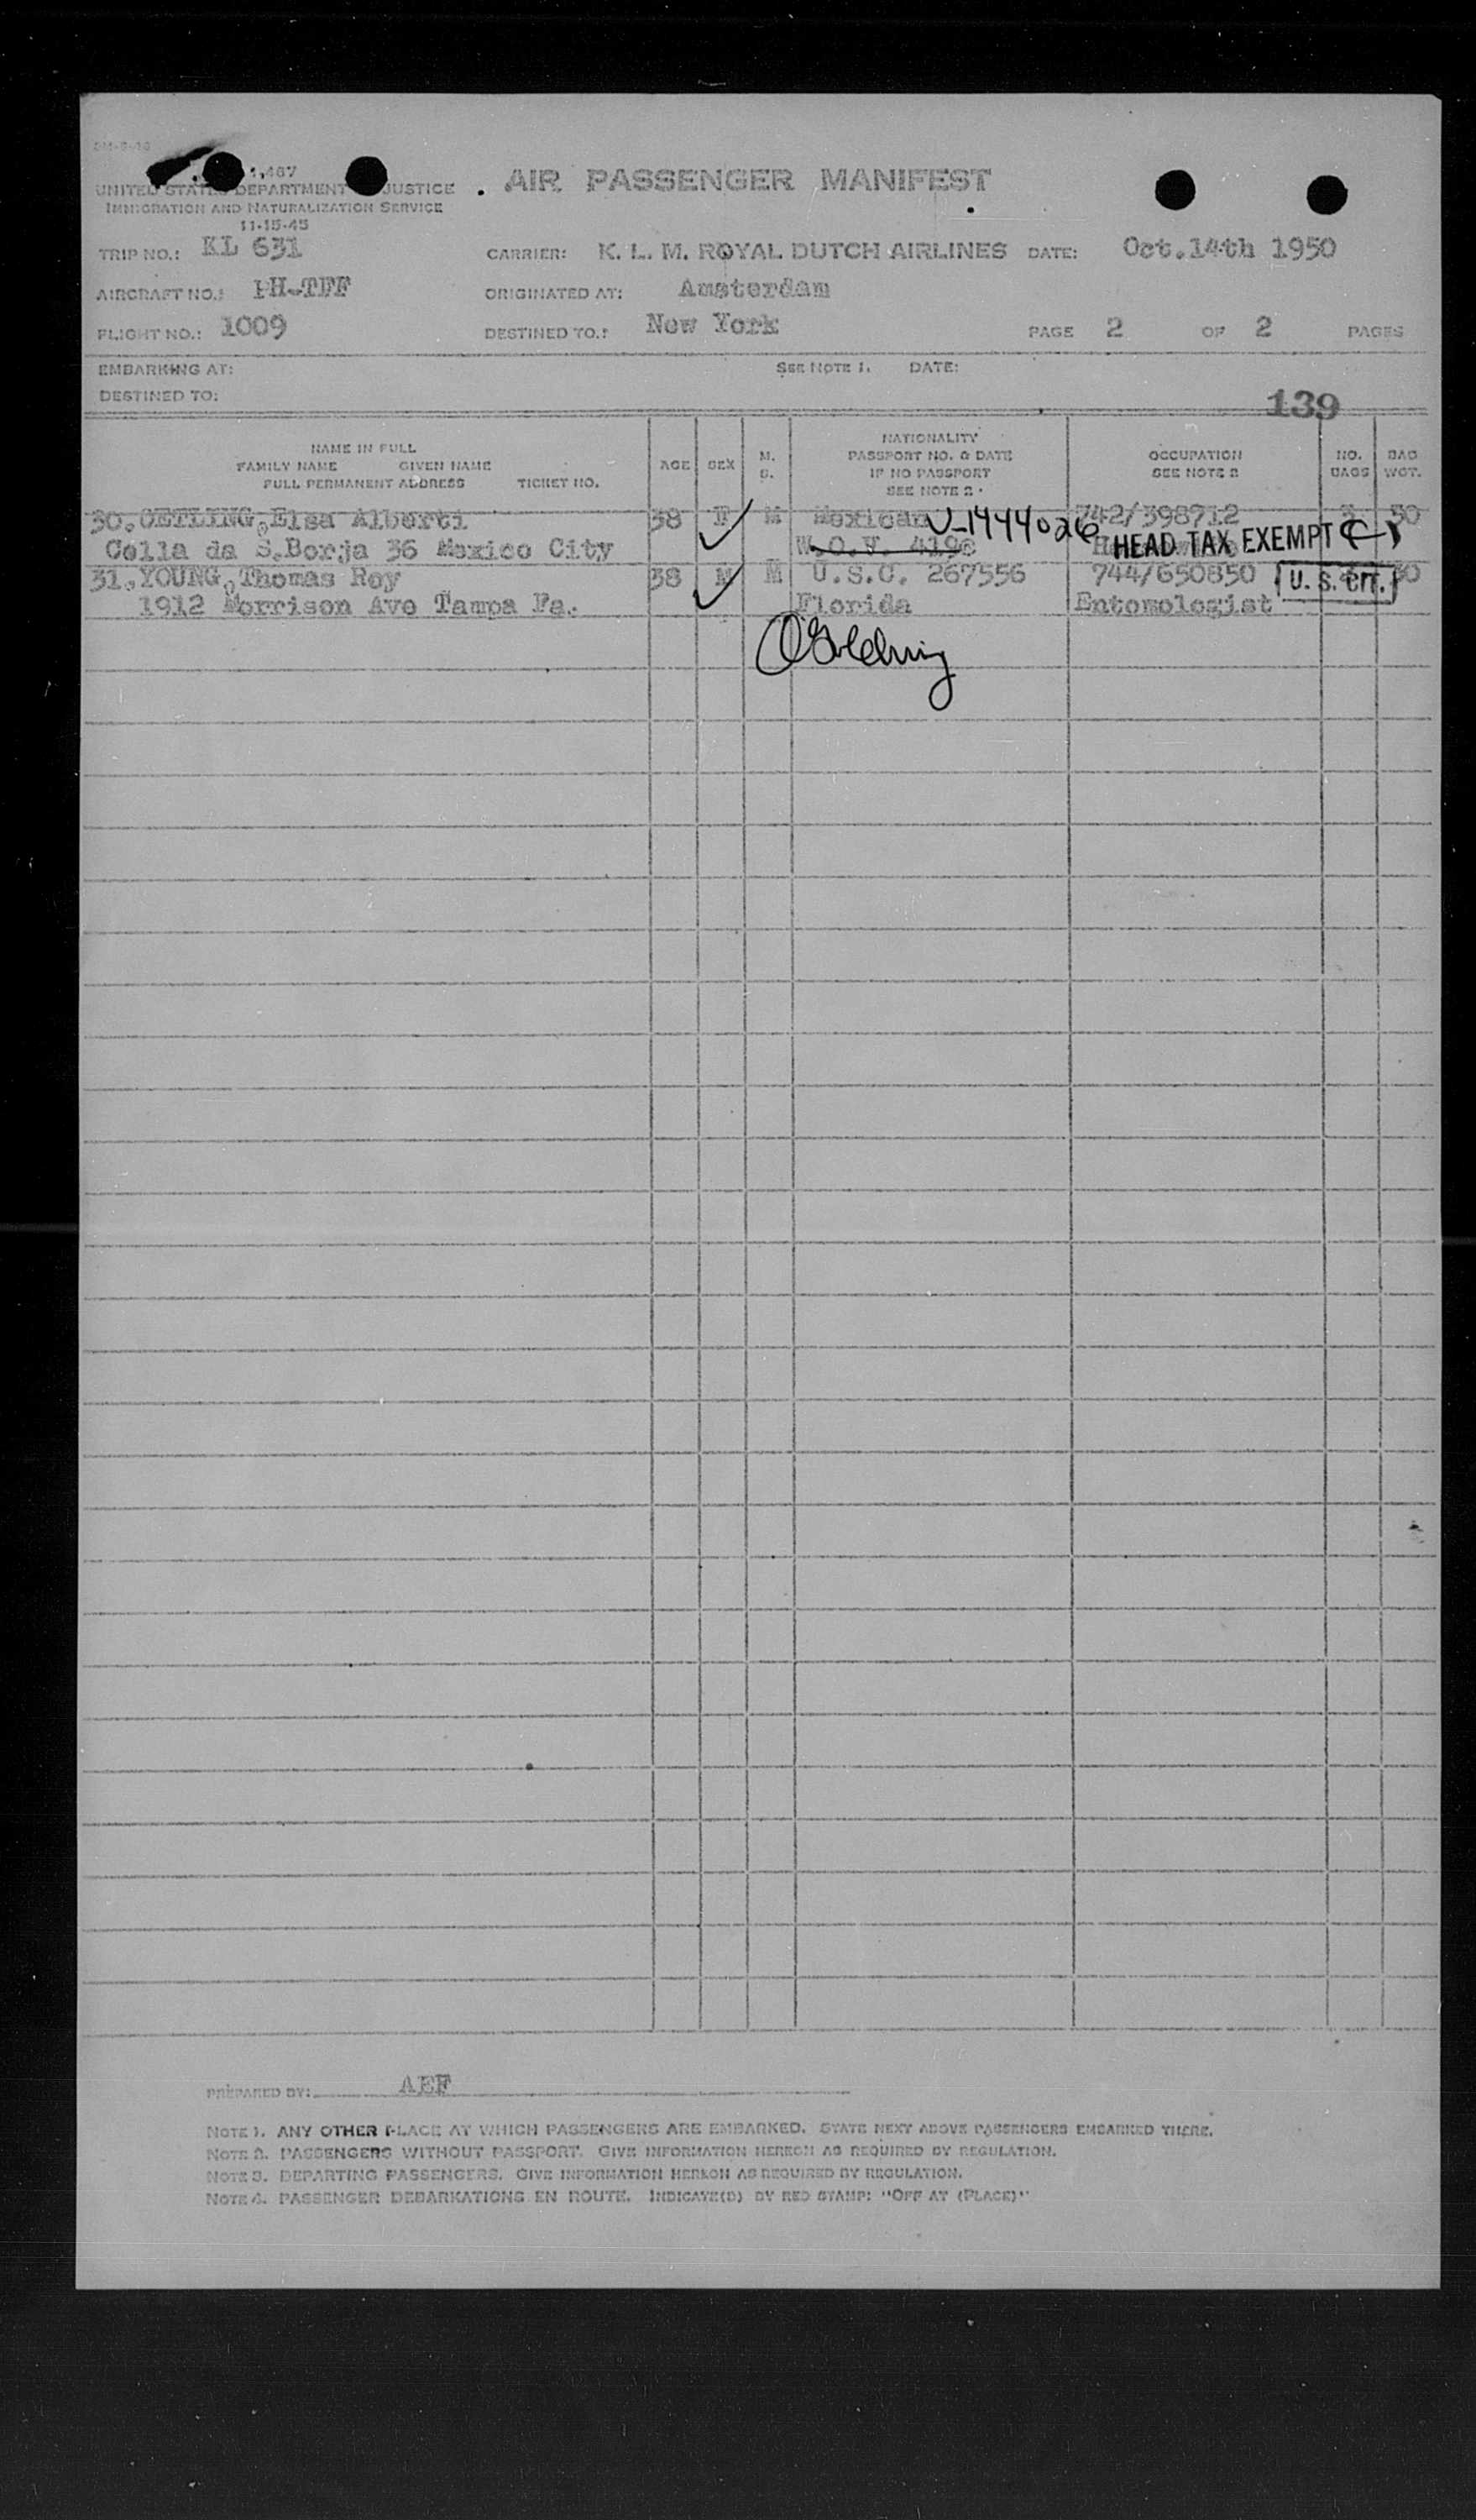 1,467
UNITED STATES DEPARTMENT JUSTICE
IMMIGRATION AND NATURALIZATION SERVICE
11-15-45
AIR PASSENGER MANIFEST
TRIP NO.: KL 631 CARRIER: K. L. M. ROYAL DUTCH AIRLINES DATE: Oct.14th 1950
AIRCRAFT NO.: PH-TFF ORIGINATED AT: Amsterdam
FLIGHT NO.: 1009 DESTINED TO.: New York PAGE 2 OF 2 PAGES
EMBARKING AT: SEE NOTE 1. DATE:
DESTINED TO:
139
NAME IN FULL
FAMILY NAME GIVEN NAME
FULL PERMANENT ADDRESS TICKET NO.
AGE SEX M. S.
NATIONALITY
PASSPORT NO. & DATE
IF NO PASSPORT
SEE NOTE 2.
OCCUPATION
SEE NOTE 2
NO. BAGS
BAG WGT.
30.OETLING,Elsa Alberti 38 F M Mexican V-1444026 742/398712 3 50
Colla da S.Borja 36 Mexico City W.O.V. HEAD TAX EXEMPT
31.YOUNG,Thomas Roy 38 M M U.S.C. 267556 744/650850 U. S. CIT. 30
1912 Morrison Ave Tampa Fa. Florida Entomologist
PREPARED BY: AEF
NOTE 1. ANY OTHER PLACE AT WHICH PASSENGERS ARE EMBARKED. STATE NEXT ABOVE PASSENGERS EMBARKED THERE.
NOTE 2. PASSENGERS WITHOUT PASSPORT. GIVE INFORMATION HEREON AS REQUIRED BY REGULATION.
NOTE 3. DEPARTING PASSENGERS. GIVE INFORMATION HEREON AS REQUIRED BY REGULATION.
NOTE 4. PASSENGER DEBARKATIONS EN ROUTE. INDICATE(D) BY RED STAMP: "OFF AT (PLACE)"